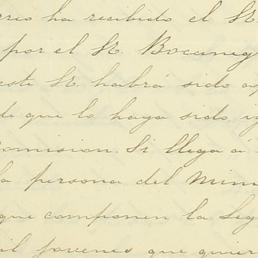 ha recibido el Sr
por el Sr. Bocaneg
este Sr. habrá sido
de que lo haya sido
comision. Si llega á
la persona del Mini
que componen la Leg
jovenes que quier